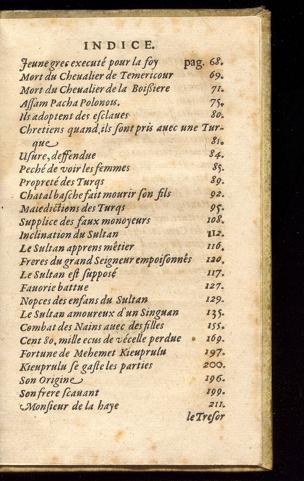 INDICE.
Jeune grec executé pour la foy pag. 68.
Mort du Chevalier de Temericour 69.
Mort du Chevalier de la Boißiere 71.
Aſſam Pacha Polonois. 75.
Ils adoptent des eſclaves 80.
Chretiens quand, ils ſont pris avec une Tur-
que 81.
Uſure, deffendue 84.
Peché de voir les femmes 85.
Propreté des Turqs 89.
Chatal baſche fait mourir ſon fils 92.
Maledictions des Turqs 95.
Supplice des faux monoyeurs 108.
Inclination du Sultan 112.
Le Sultan apprens métier 116.
Freres du grand Seigneur empoiſonnés 120.
Le Sultan eſt ſuppoſé 117.
Fauorie battue 127.
Nopces des enfans du Sultan 129.
Le Sultan amoureux d'un Singuan 135.
Combat des Nains auec des filles 155.
Cent 80, mille ecus de vécelle perdue 169.
Fortune de Mehemet Kieuprulu 197.
Kieuprulu ſe gaſte les parties 200.
Son Origine 196.
Son frere ſcauant 199.
Monſieur de la haye 211.
le Treſor